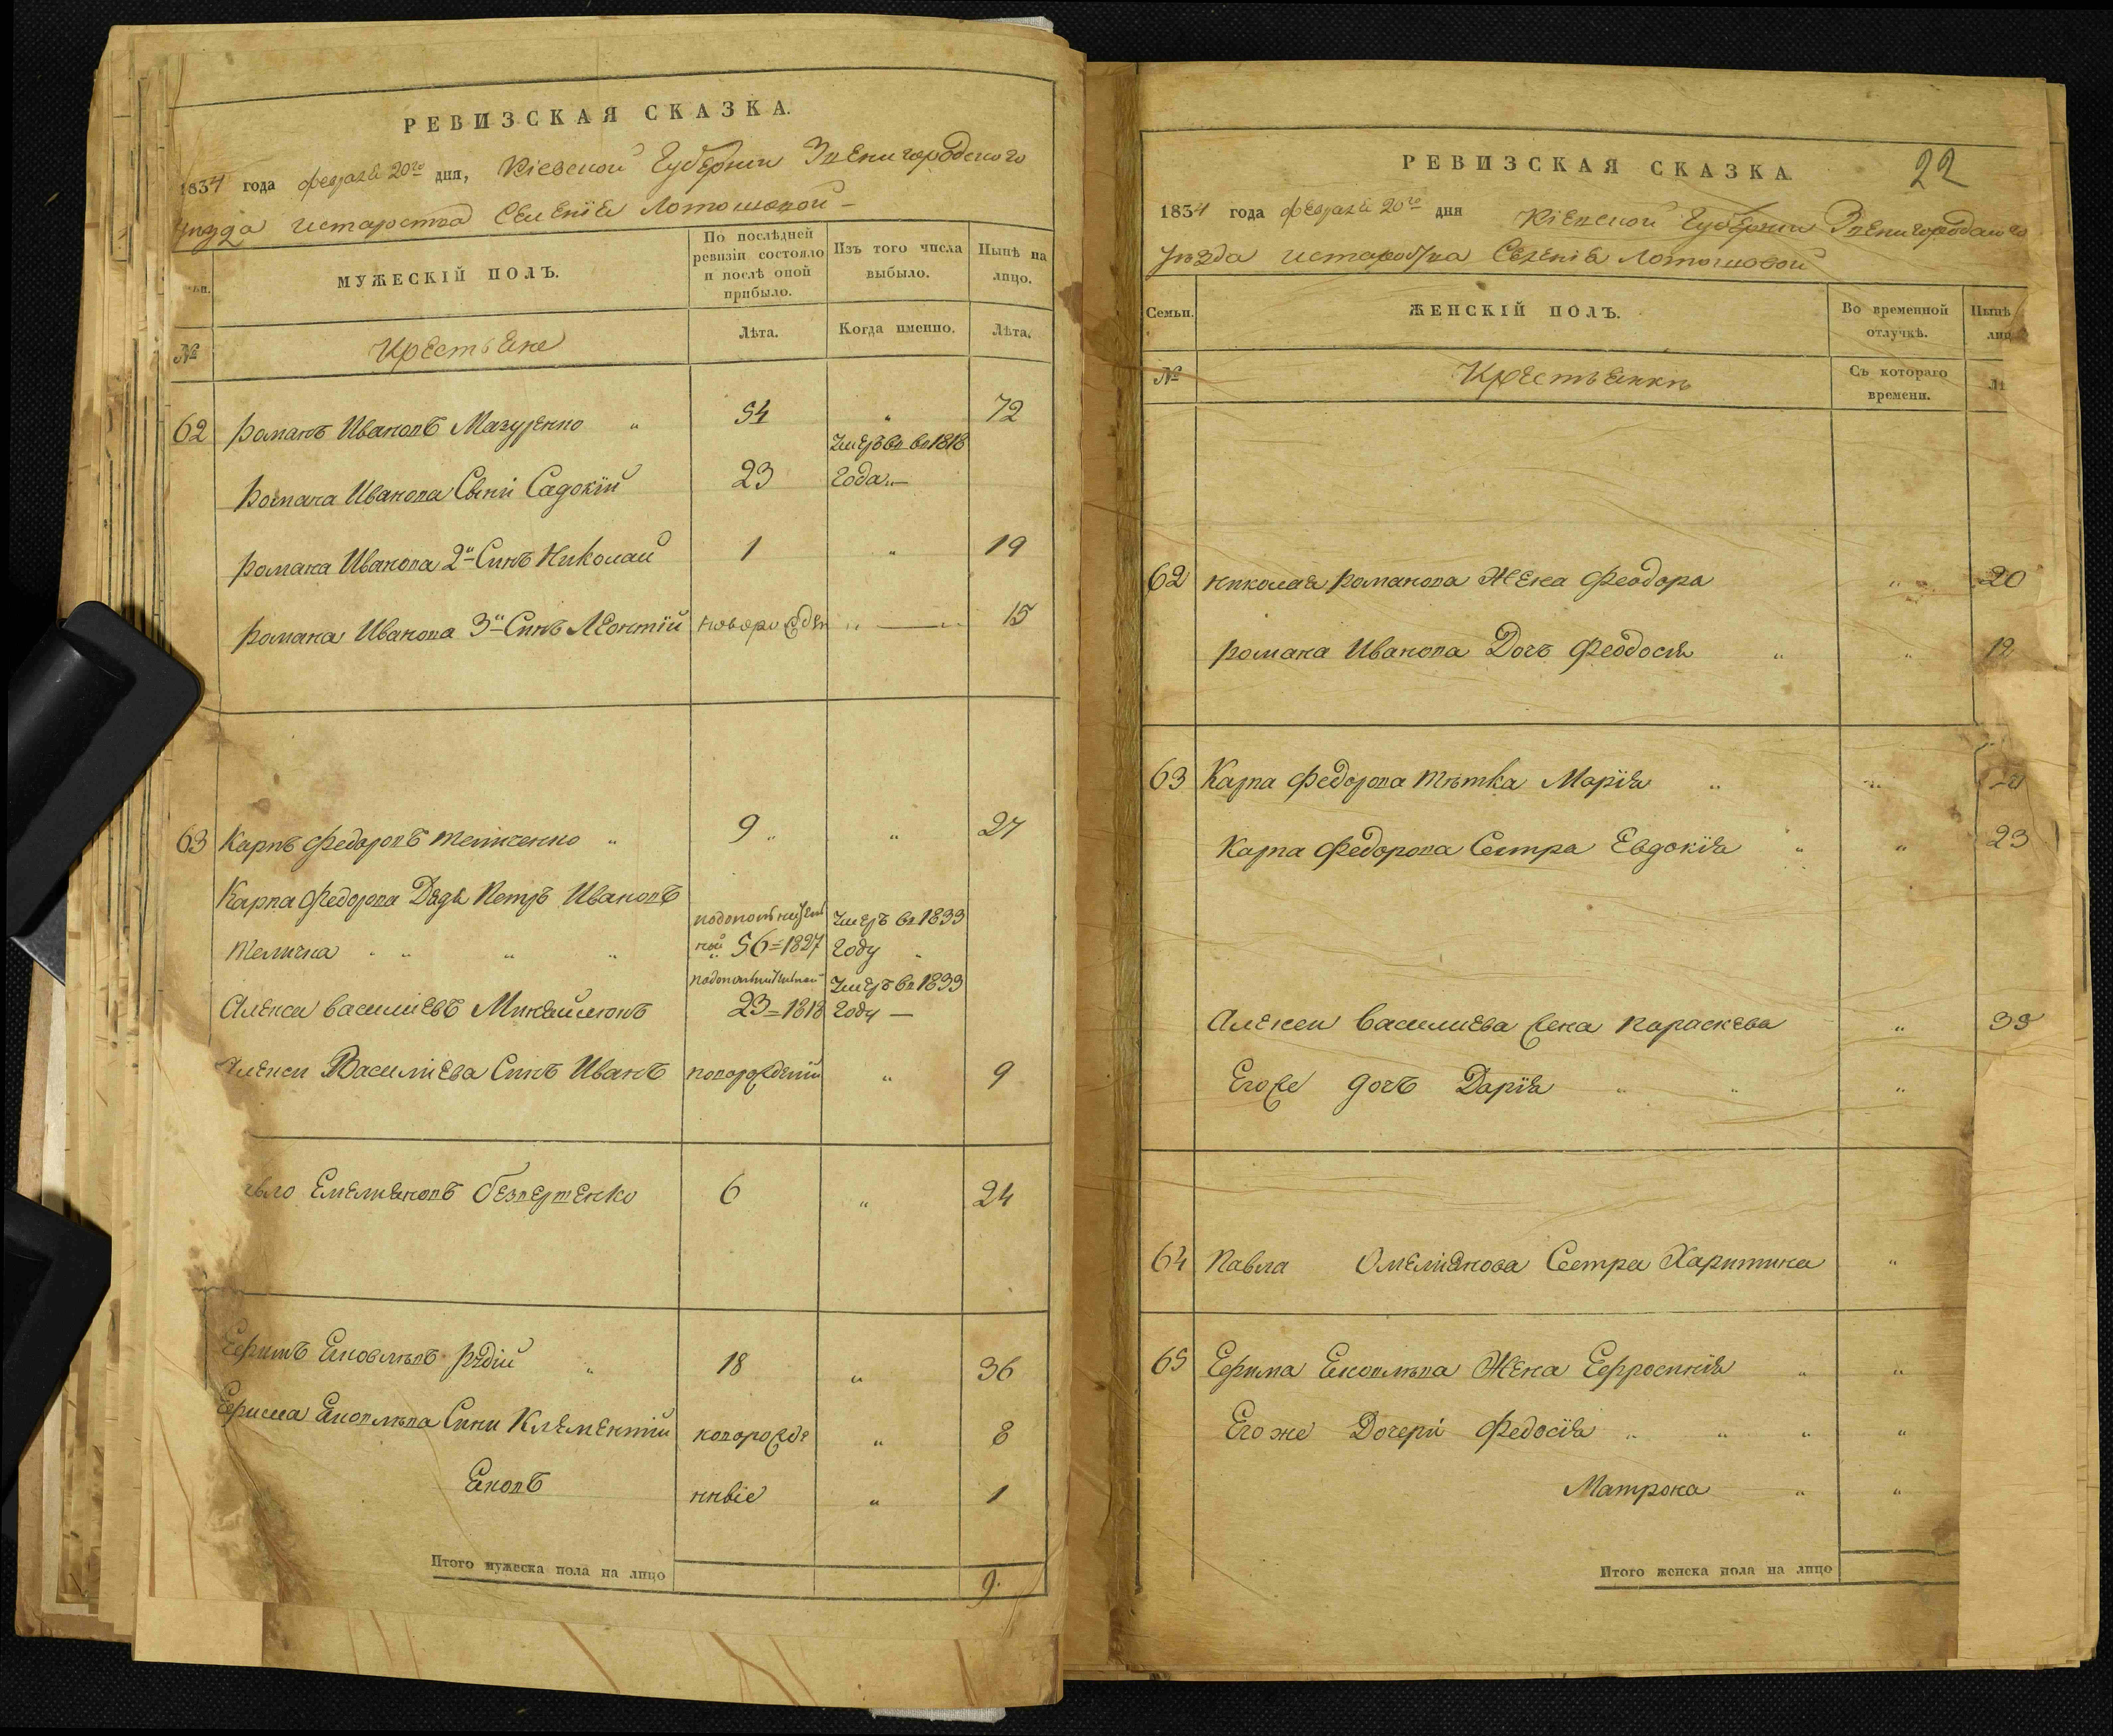 РЕВИЗСКАЯ СКАЗКА.
1834 года февраля 20го дня, Кіевской Губерніи Звенигородского
уѣзда истароства Селенія Лотошовой
МУЖЕСКІЙ ПОЛЪ.
По послѣдней ревизіи состояло и послѣ оной прибыло.
Изъ того числа выбыло.
Нынѣ на лицо.
№ Крестьяне Лѣта. Когда именно. Лѣта.
62 Романъ Ивановъ Мазуренко " 54 " 72
Романа Иванова Сыни Садокій 23 Умеръ въ 1818 года
Романа Иванова 2й Синъ Николай 1 " 19
Романа Иванова 3й Синъ Леонтій новорожден " — " 15
63 Карпъ Федоровъ Теличенко " 9 " " 27
Карпа Федорова Дядя Петръ Ивановъ
Теличка 56=1827 Умеръ въ 1833 Году
Алекси Василиевъ 23=1818 Умеръ въ 1833 году —
Алекси Василиева Синъ Иванъ новорожденій " 9
Емеліяновъ Безвертенко 6 " 24
Ефимъ Рудій " 18 " 36
Ефима Сини Климентій новорожде " 8
нныіе " 1
Итого мужеска пола на лицо 9.
22
РЕВИЗСКАЯ СКАЗКА.
1834 года февраля 20го дня Кіевской Губерніи Звенигородского
уѣзда Селенія Лотошовой
Семьи. ЖЕНСКІЙ ПОЛЪ. Во временной отлучкѣ. Нынѣ
№ Крестьянки Съ котораго времени.
62 Николая Романова Жена Феодора " 20
Романа Иванова Дочъ Феодосія " " 12
63 Карпа Федорова тѣтка Марія " "
Карпа Федорова Сестра Евдокія " " 23
Алекси Василиева жена Параскева " 33
Егоже дочъ Дарія " " "
64 Павла Омеліянова Сестра Харитина "
65 Ефима Жена Ефросинія " "
Егоже Дочери Федосія " " " "
Матрона " "
Итого женска пола на лицо